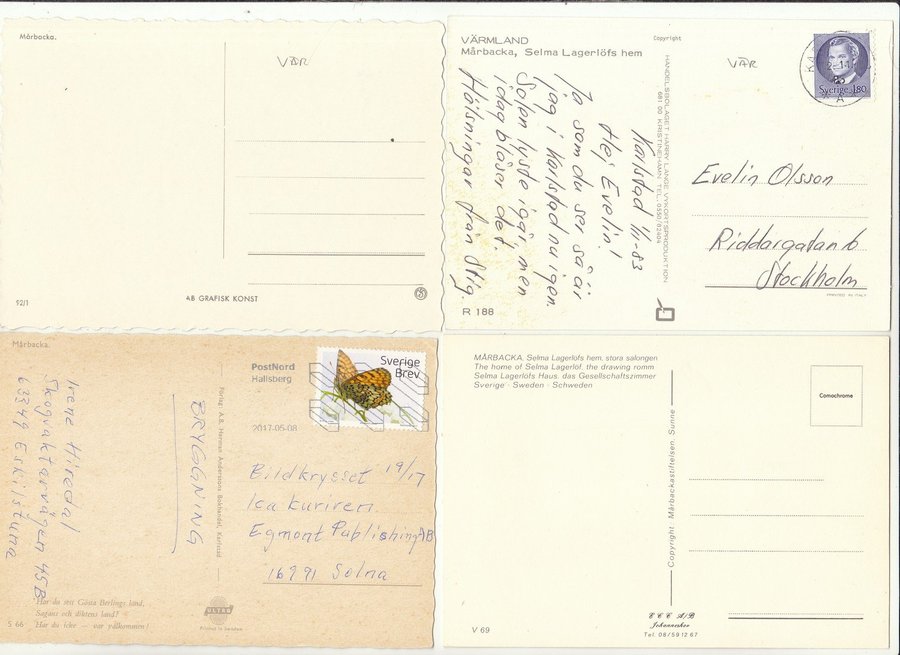 Mårbacka.
VÄR
12/1
AB GRAFISK KONST
VÄRMLAND
Mårbacka, Selma Lagerlöfs hem
R 188
Copyright
HANDELSBOLAGET HARRY LANGE VYKORTSPRODUKTION
681 00 KRISTINEHAMN TEL. 0550/82404
VÄR
Sverige 1.80
Karlstad 1/11-83
Hej Evelin!
Ja som du ser så är
jag i Karlstad nu igen.
Solen lyste igår, men
idag blåser det,
Hälsningar från Stig.
Evelin Olsson
Riddargatan 6
Stockholm
PRINTED IN ITALY
Mårbacka.
Irene Hiredal
Skogvaktarvägen 45B
63349 Eskilstuna
BRYGGNING
Förlag: A.B. Herman Anderssons Bokhandel, Karlstad
PostNord
Hallsberg
2017-05-08
Sverige
Brev
Bildkrysset 19/17
Ica Kuriren
Egmont Publishing AB
16991 Solna
Har du sett Gösta Berlings land,
Sagans och diktens land?
Har du icke — var välkommen!
S 66
ULTRA
Printed in Sweden
MÅRBACKA. Selma Lagerlöfs hem. stora salongen
The home of Selma Lagerlöf. the drawing romm
Selma Lagerlöfs Haus. das Gesellschaftszimmer
Sverige · Sweden · Schweden
V 69
Copyright: Mårbackastiftelsen, Sunne
Comochrome
E C C A/B
Johanneshov
Tel. 08/59 12 67